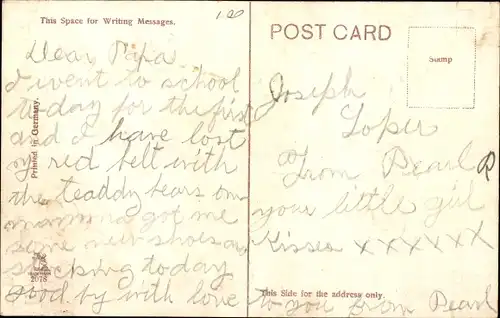 This Space for Writing Messages.
1.00
Dear Papa
I went to school
to-day for the first
and I have lost
my red belt with
the teaddy bears on
mamma got me
some new shoes an
stocking today
good by with love
to you from Pearl
Printed in Germany.
2078
POST CARD
Stamp
Joseph
Loper
From Pearl R
your little girl
Kisses xxxxxx
This Side for the address only.